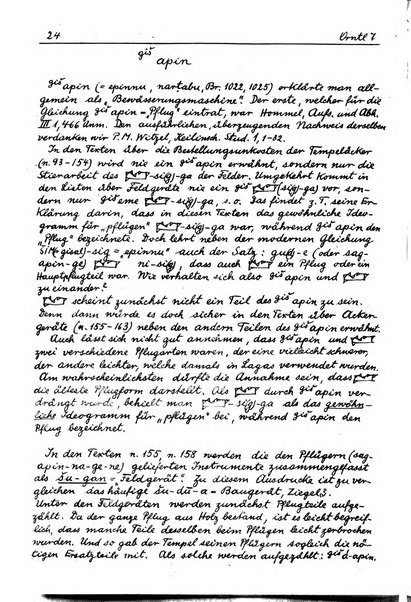 24 Orntl 7
giš apin
giš apin (= epinnu, narṭabu, Br. 1022, 1025) erklärte man all-
gemein als "Bewässerungsmaschine". Der erste, welcher für die
Gleichung giš apin = "Pflug" eintrat, war Hommel, Aufs. und Abh.
III 1, 466 Anm. Den ausführlichen, überzeugenden Nachweis derselben
verdanken wir P. M. Witzel, Keilinsch. Stud. 1, 1-32.
In den Texten über die Bestellungsunkosten der Tempeläcker
(n. 93-154) wird nie ein giš apin erwähnt, sondern nur die
Stierarbeit des -ga der Felder. Umgekehrt kommt in
den Listen über Feldgeräte nie ein giš -ga) vor, son-
dern nur giš eme -ga, s. o. Das findet z. T. seine Er-
klärung darin, dass in diesen Texten das gewöhnliche Ideo-
gramm für "pflügen" -ga war, während giš apin den
"Pflug" bezeichnete. Doch lehrt neben der modernen Gleichung
-sig = "epinnu" auch der Satz: -e (oder sag-
apin-ge) , dass auch ein Pflug oder ein
Hauptpflugteil war. Wie verhalten sich also giš apin und
zu einander?
scheint zunächst nicht ein Teil des giš apin zu sein.
Denn dann würde es doch sicher in den Texten über Acker-
geräte (n. 155-163) neben den andern Teilen des giš apin erwähnt.
Auch lässt sich nicht gut annehmen, dass giš apin und
zwei verschiedene Pflugarten waren, der eine vielleicht schwerer,
der andere leichter, welche damals in Lagas verwendet wurden.
Am wahrscheinlichsten dürfte die Annahme sein, dass
die älteste Pflugform darstellt. Als durch giš apin ver-
drängt wurde, behielt man -ga als das gewöhn-
liche Ideogramm für "pflügen" bei, während giš apin den
Pflug bezeichnet.
In den Texten n. 155, n. 158 werden die den Pflügern (sag-
apin-na-ge-ne) gelieferten Instrumente zusammengefasst
als Su-gan = Feldgerät. Zu diesem Ausdrucke ist zu ver-
gleichen das häufige Su-dū-a = Baugerät, Ziegel.
Unter den Feldgeräten werden zunächst Pflugteile aufge-
zählt. Da der ganze Pflug aus Holz bestand, ist es leicht begreif-
lich, dass manche Teile desselben beim Pflügen leicht zerbrochen
wurden. Und so gab der Tempel seinen Pflügern sogleich die nö-
tigen Ersatzteile mit. Als solche werden aufgezählt: giš á-apin.